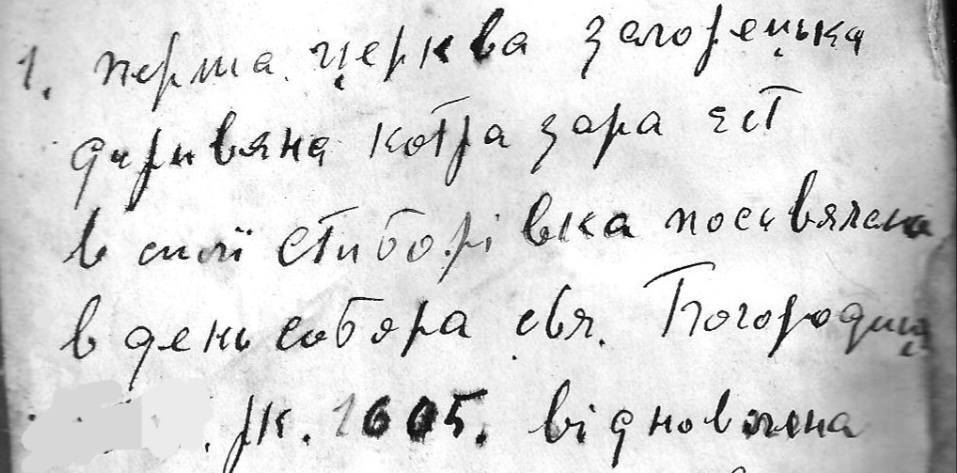 1. перша церква загорецька
диривяна котра зара єст
в силї Стиборівка посьвячена
в день собора свя. Богородиц
рк. 1605. відновлена